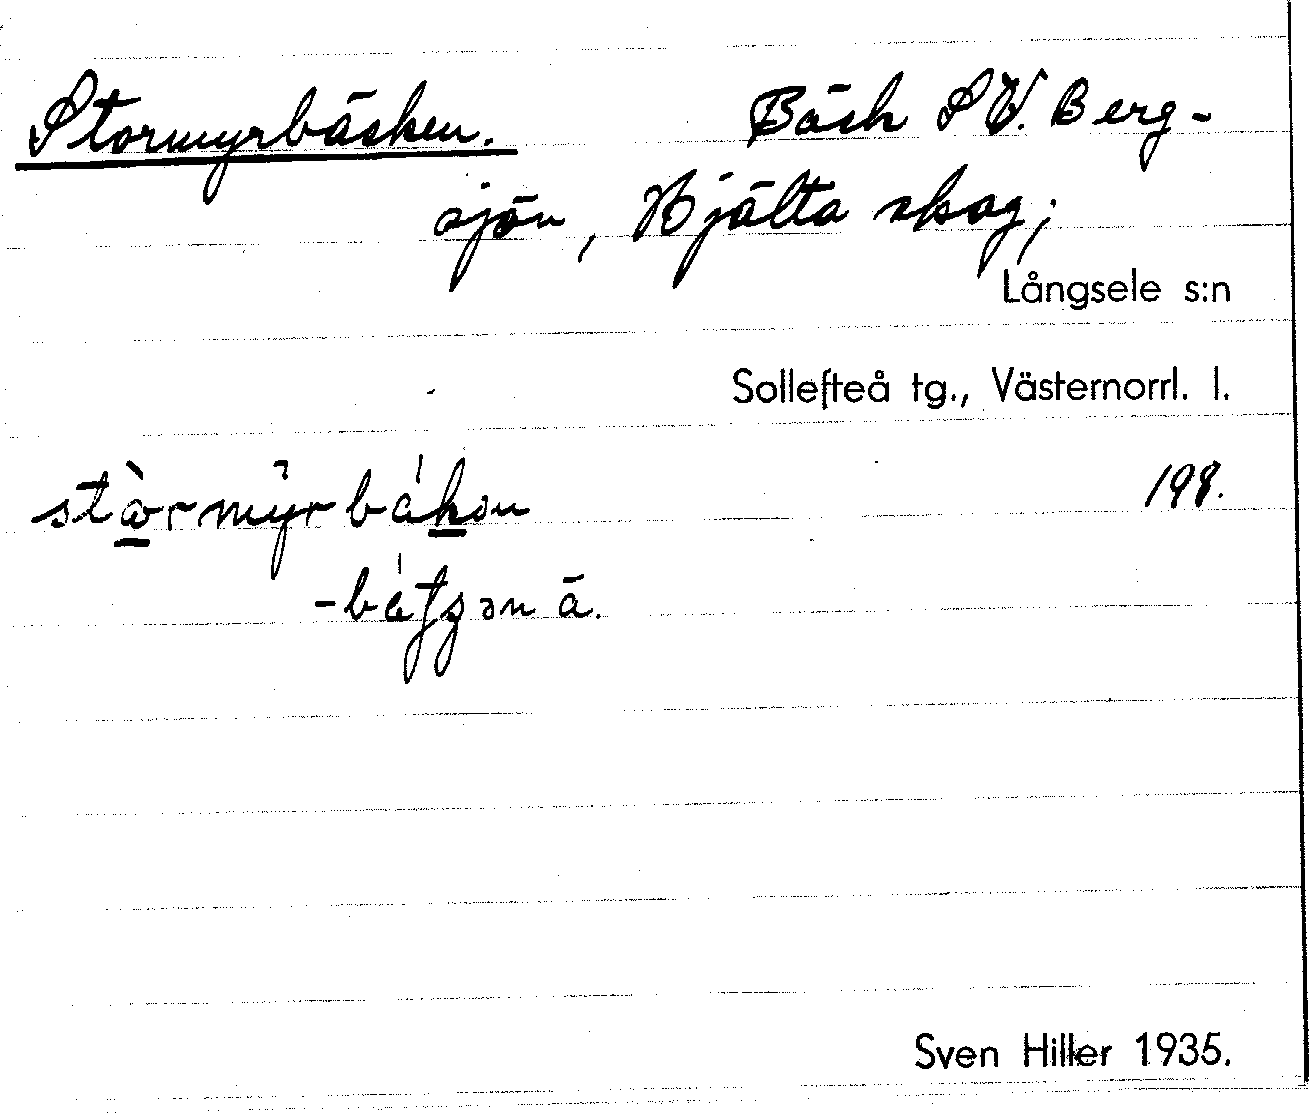 Stormyrbäcken. Bäck SV. Berg-
sjön, Hjälta skog;
Långsele s:n
Sollefteå tg., Västernorrl. l.
198.
ä.
Sven Hiller 1935.